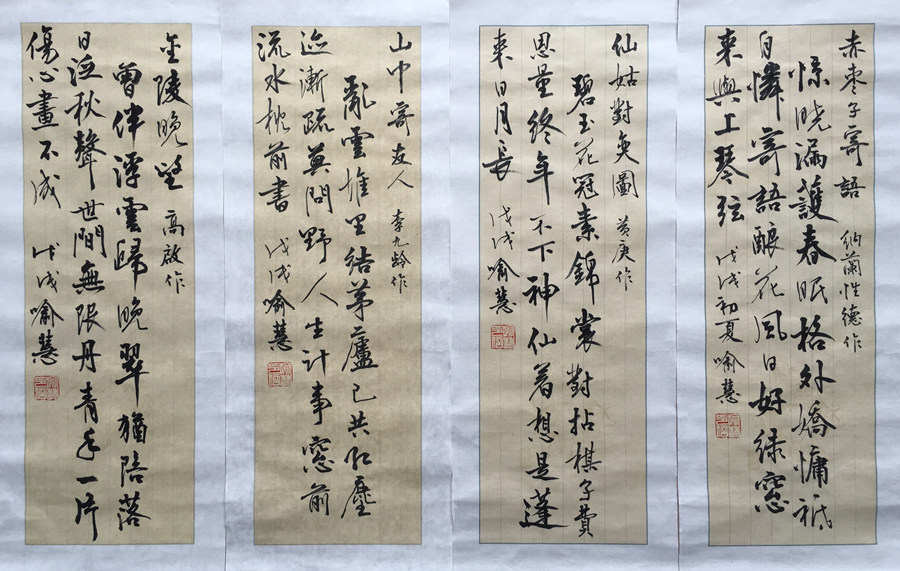 赤枣子寄語 纳蘭性德作
惊晓漏護春眠格外嬌慵祇
自憐寄語釀花風日好绿窓
来與上琴弦 戊戌初夏喻慧
仙姑對奕圖 黄庚作
碧玉花冠素錦裳對拈棋子費
思量终年不下神仙着想是蓬
莱日月長 戊戌喻慧
山中寄友人 李九龄作
亂雲堆里结茅廬已共红塵
迹漸疏莫問野人生計事窓前
流水枕前書 戊戌喻慧
金陵晚望 高啟作
曾伴浮雲歸晚翠猶陪落
日泛秋聲世間無限丹青手一片
傷心畫不成 戊戌喻慧